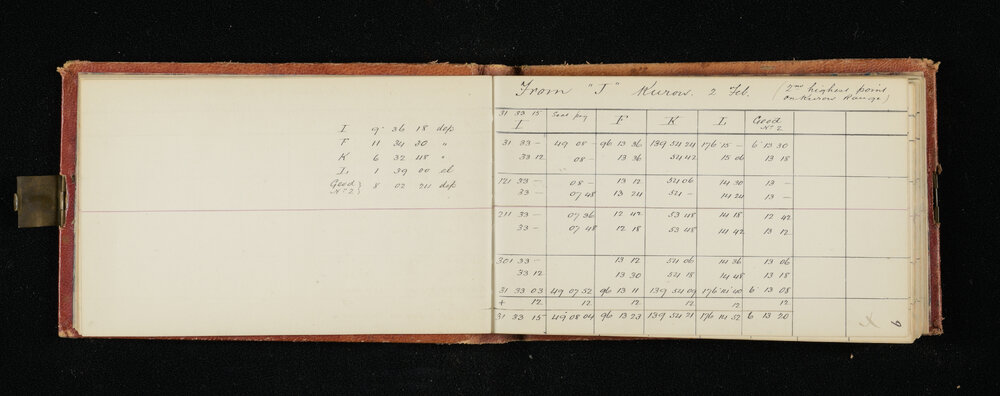 I 9 36 18 dep
F 11 34 30 "
K 6 32 48 "
L 1 39 00 el
Good } 8 02 20 dep
No 2 }
From "J" Kurow. 2 Feb. (2nd highest point
on Kurow Range)
31 33 15 Seal peg F K L Good
I No 2
31 33 – 49 08 – 96 13 36 139 54 24 176 15 – 6 13 30
33 12 08 – 13 36 54 42 15 06 13 18
121 33 – 08 – 13 12 54 06 14 30 13 –
33 – 07 48 13 24 54 – 14 24 13 –
211 33 – 07 36 12 42 53 48 14 18 12 42
33 – 07 48 12 18 53 48 14 42 13 12
301 33 – 13 12 54 06 14 36 13 06
33 12 13 30 54 18 14 48 13 18
31 33 03 49 07 52 96 13 11 139 54 09 176 14 40 6 13 08
+ 12 12 12 12 12 12
31 33 15 49 08 04 96 13 23 139 54 21 176 14 52 6 13 20
9